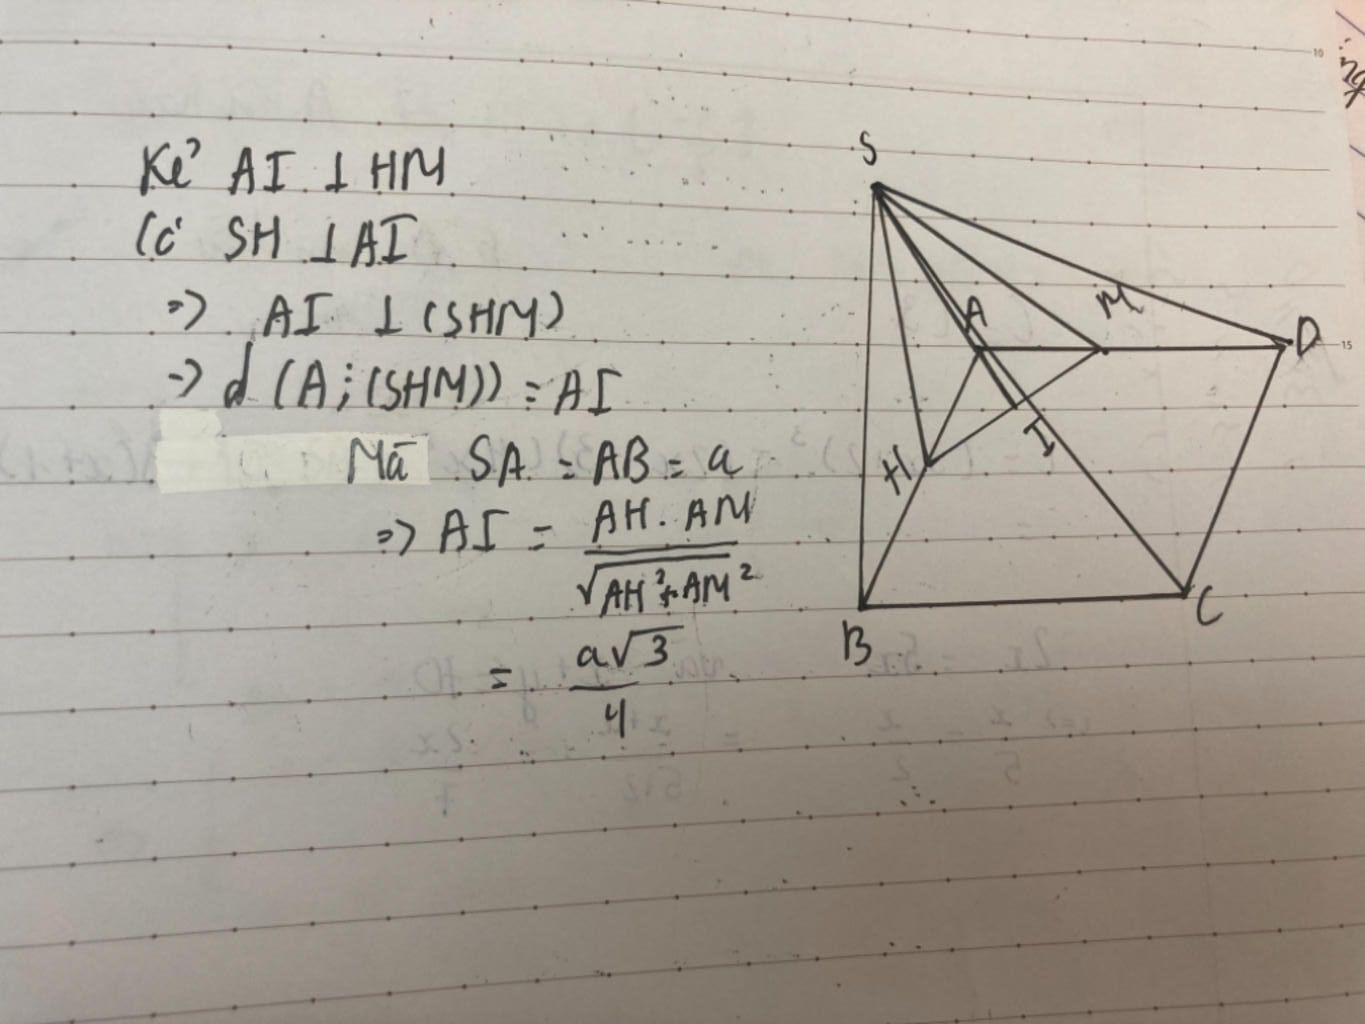 Kẻ AI ⊥ HM
Có SH ⊥ AI
=> AI ⊥ (SHM)
-> d (A; (SHM)) = AI
Mã SA = AB = a
=> AI = AH. AM
√AH²+AM²
= a√3
4
S
A
M
D
15
10
H
I
B
C